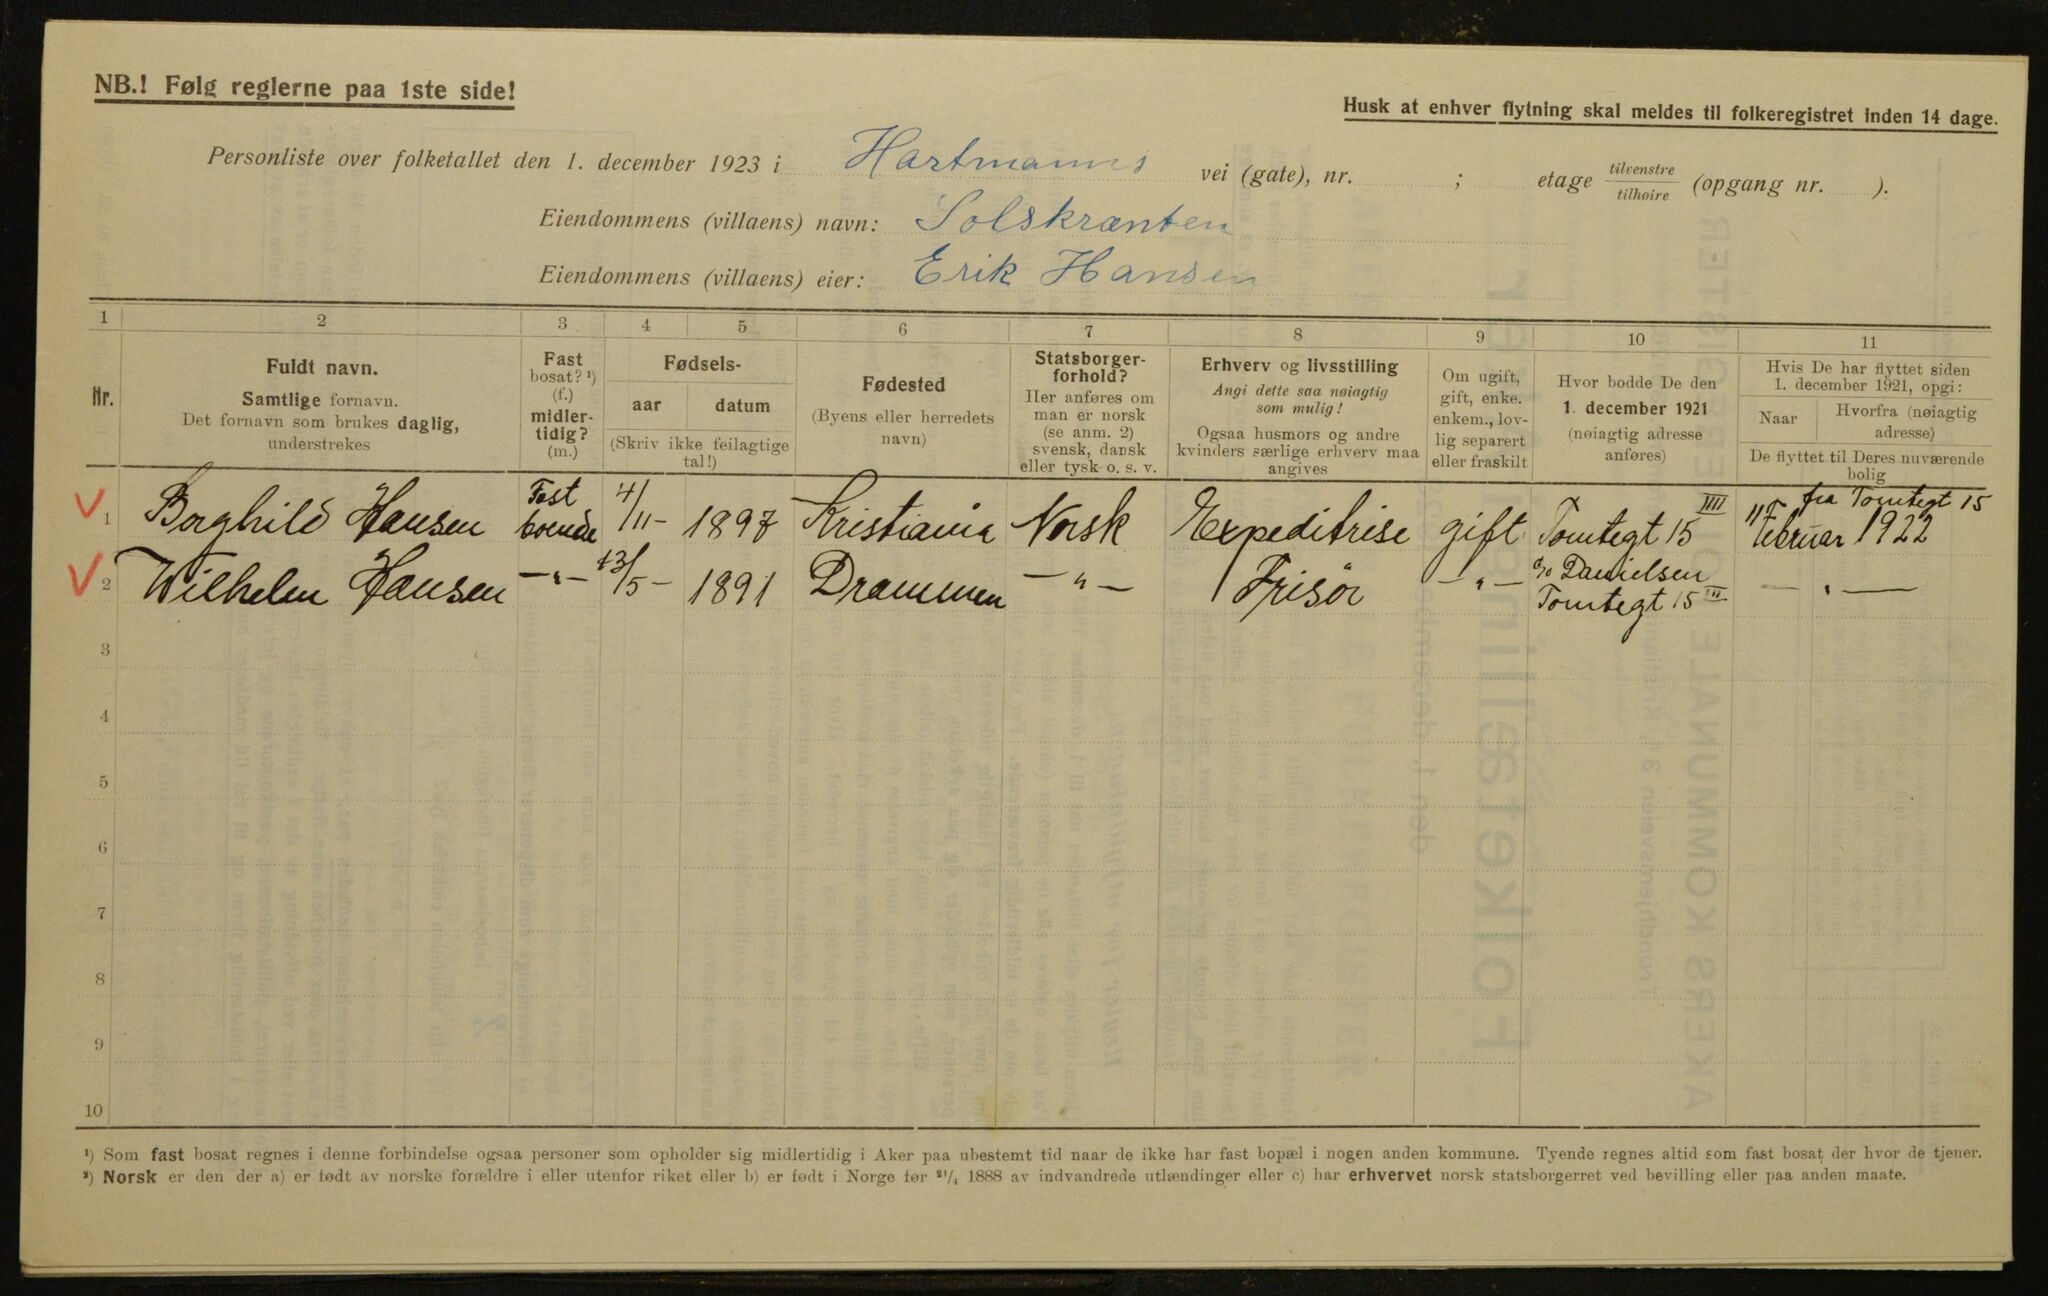 NB.! Følg reglerne paa 1ste side!
Husk at enhver flytning skal meldes til folkeregistret inden 14 dage.
Personliste over folketallet den 1. december 1923 i Hartmanns vei (gate), nr. ; etage tilvenstre/tilhøire (opgang nr. ).
Eiendommens (villaens) navn: Solskrænten
Eiendommens (villaens) eier: Erik Hansen
1 2 3 4 5 6 7 8 9 10 11
Nr.
Fuldt navn.
Samtlige fornavn.
Det fornavn som brukes daglig,
understrekes
Fast
bosat? ¹)
(f.)
midler-
tidig?
(m.)
Fødsels-
aar datum
(Skriv ikke feilagtige
tal!)
Fødested
(Byens eller herredets
navn)
Statsborger-
forhold?
Her anføres om
man er norsk
(se anm. 2)
svensk, dansk
eller tysk o. s. v.
Erhverv og livsstilling
Angi dette saa nøiagtig
som mulig!
Ogsaa husmors og andre
kvinders særlige erhverv maa
angives
Om ugift,
gift, enke.
enkem., lov-
lig separert
eller fraskilt
Hvor bodde De den
1. december 1921
(nøiagtig adresse
anføres)
Hvis De har flyttet siden
1. december 1921, opgi:
Naar Hvorfra (nøiagtig
adresse)
De flyttet til Deres nuværende
bolig
1 Borghild Hansen Fast boende 4/11- 1897 Kristiania Norsk Expeditrise gift Tomtegt 15 IIII Februar 1922 fra Tomtegt 15
2 Wilhelm Hansen -"- 13/5- 1891 Drammen -"- Frisør -"- c/o Danielsen
Tomtegt 15 III -"-
3
4
5
6
7
8
9
10
¹) Som fast bosat regnes i denne forbindelse ogsaa personer som opholder sig midlertidig i Aker paa ubestemt tid naar de ikke har fast bopæl i nogen anden kommune. Tyende regnes altid som fast bosat der hvor de tjener.
²) Norsk er den der a) er født av norske forældre i eller utenfor riket eller b) er født i Norge før ²¹/₄ 1888 av indvandrede utlændinger eller c) har erhvervet norsk statsborgerret ved bevilling eller paa anden maate.